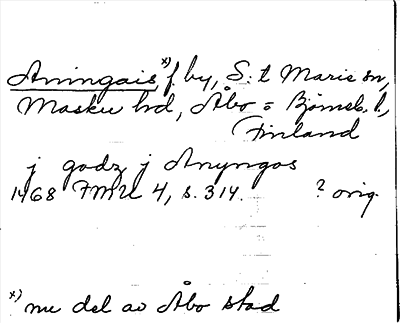 Aningais, x) f. by, S:t Marie sn,
Masku hd, Åbo = Björneb. l.,
Finland
j godz j Anyngos
1468 FMU 4, s. 314. ? orig.
x) nu del av Åbo stad